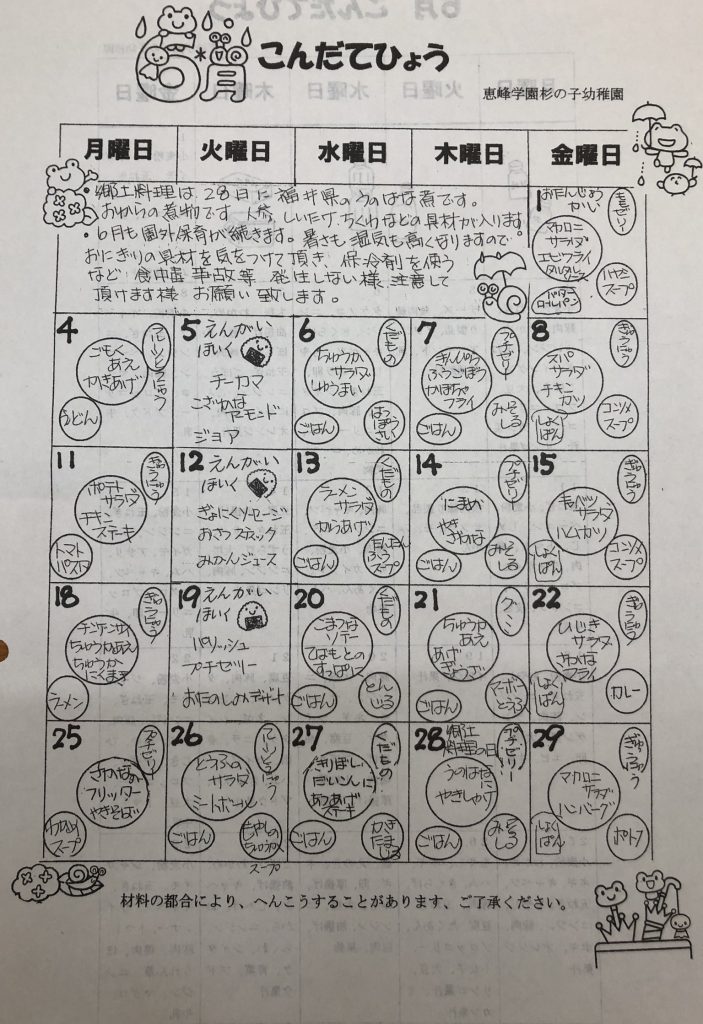 6月 こんだてひょう
恵峰学園杉の子幼稚園
月曜日 火曜日 水曜日 木曜日 金曜日
・郷土料理は、28日に福井県のうのはな煮です。
おからの煮物です 人参、しいたけ、ちくわなどの具材が入ります
・6月も園外保育が続きます。暑さも湿気も高くなりますので
おにぎりの具材を気をつけて頂き、保冷剤を使う
など 食中毒 事故等 発生しない様 注意して
頂けます様 お願い致します。
1 おたんじょう
かい
マカロニ
サラダ
エビフライ
タルタル
バター
ロールパン
スープ
4
ごもく
あえ
かきあげ
うどん
フルーツとうにゅう
5 えんがい
ほいく
チーカマ
こざかな
アーモンド
ジョア
6
くだもの
ちゅうか
サラダ
しゅうまい
ごはん
はっぽうさい
7
プチゼリー
きんぴら
ふうごぼう
かぼちゃ
フライ
ごはん
みそ
しる
8
ぎゅうにゅう
スパ
サラダ
チキン
カツ
しょく
ぱん
コンソメ
スープ
11
ぎゅうにゅう
ポテト
サラダ
チキン
ステーキ
トマト
パスタ
12 えんがい
ほいく
ぎょにくソーセージ
おさつスナック
みかんジュース
13
くだもの
ラーメン
サラダ
からあげ
ごはん
たんたん
ふう
スープ
14
プチゼリー
にまめ
やき
ざかな
ごはん
みそ
しる
15
ぎゅうにゅう
キャベツ
サラダ
ハムカツ
しょく
ぱん
コンソメ
スープ
18
ぎゅうにゅう
チンゲンサイ
ちゅうかあえ
ちゅうか
にくま
ラーメン
19 えんがい
ほいく
パリッシュ
プチゼリー
おたのしみデザート
20
くだもの
こまつな
ソテー
とりももの
すっぱに
ごはん
とん
じる
21
グミ
ちゅうか
あえ
あげ
ぎょうざ
ごはん
マーボー
とうふ
22
ぎゅうにゅう
ひじき
サラダ
さかな
フライ
しょく
ぱん
カレー
25
プチゼリー
さかなの
フリッター
やきそば
わかめ
スープ
26
フルーツとうにゅう
とうふの
サラダ
ミートボール
ごはん
もやしの
ちゅうか
スープ
27
くだもの
きりぼし
だいこんに
あつあげ
ステーキ
ごはん
かき
たま
じる
28 郷土
料理の日
プチゼリー
うのはな
に
やきしゃけ
ごはん
みそ
しる
29
ぎゅうにゅう
マカロニ
サラダ
ハンバーグ
しょく
ぱん
ポトフ
材料の都合により、へんこうすることがあります、ご了承ください。